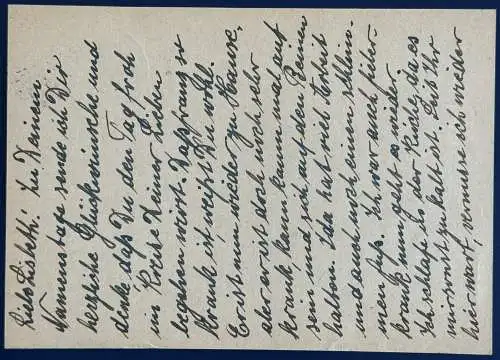 Liebe Lisbeth! Zu Deinem
Namenstage sende ich Dir
herzliche Glückwünsche und
denke, daß Du den Tag froh
im Kreise Deiner Lieben
begehen wirst. Daß Franz so
krank ist weißt Du wohl.
Er ist nun wieder zu Hause,
aber er ist doch noch sehr
krank, kann kaum mal auf
sein und sich auf den Beinen
halten. Ida hat viel Arbeit
und auch noch einen schlim-
men Fuß. Ich war auch hier
krank nun geht es wieder
Ich schlafe in der Küche, da es
mir sonst zu kalt ist. Daß Ihr
hier wart, vermisse ich wieder